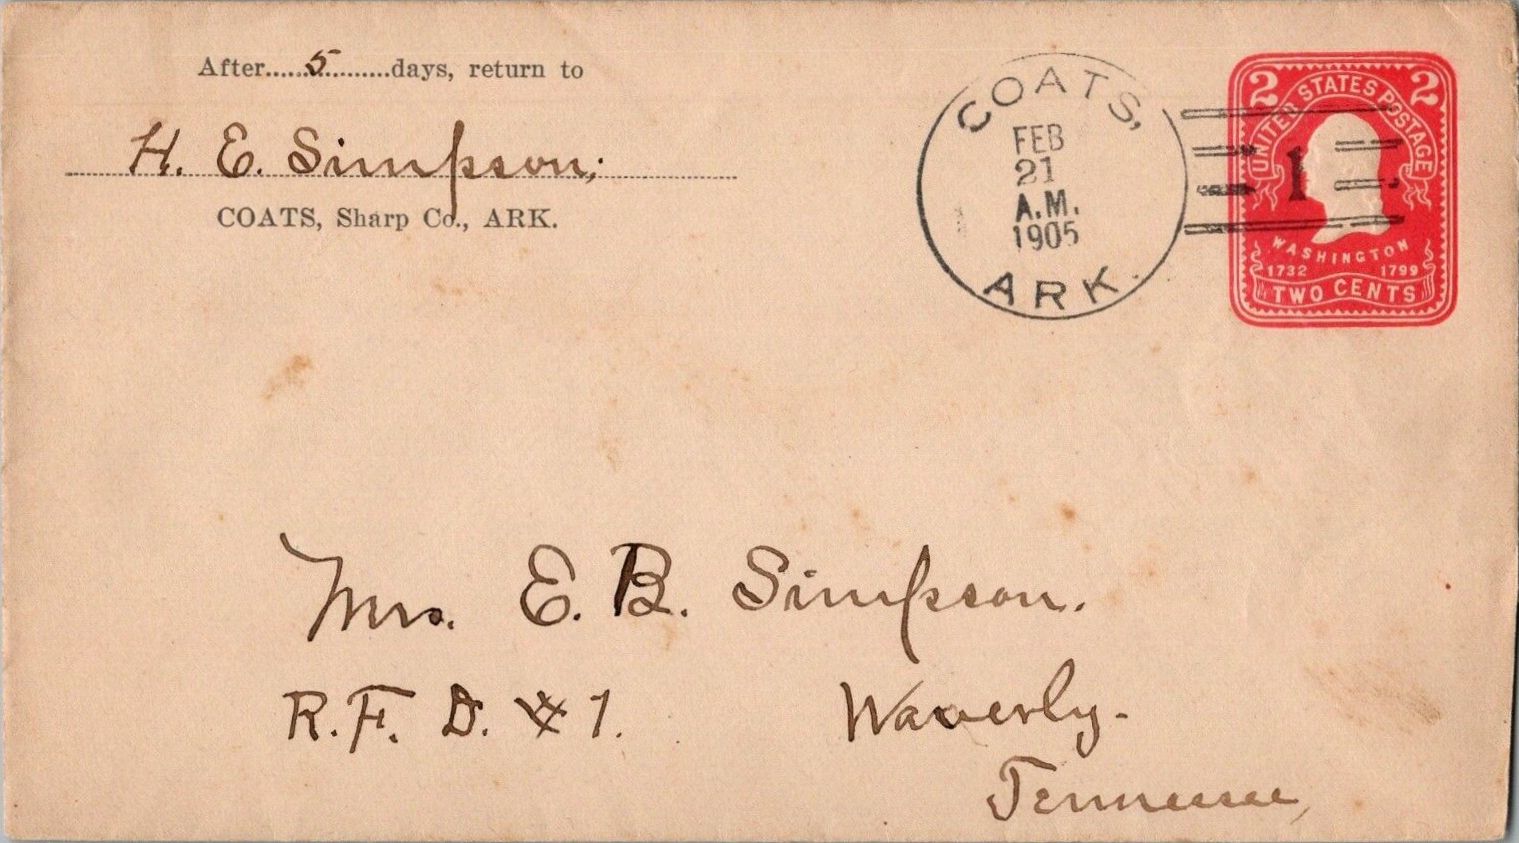 After......5..........days, return to
H. E. Simpson,
COATS, Sharp Co., ARK.
COATS,
FEB
21
A.M.
1905
ARK.
1
2 2
UNITED STATES POSTAGE
WASHINGTON
1732 1799
TWO CENTS
Mrs. E. B. Simpson.
R. F. D. # 1. Waverly.
Tennessee,